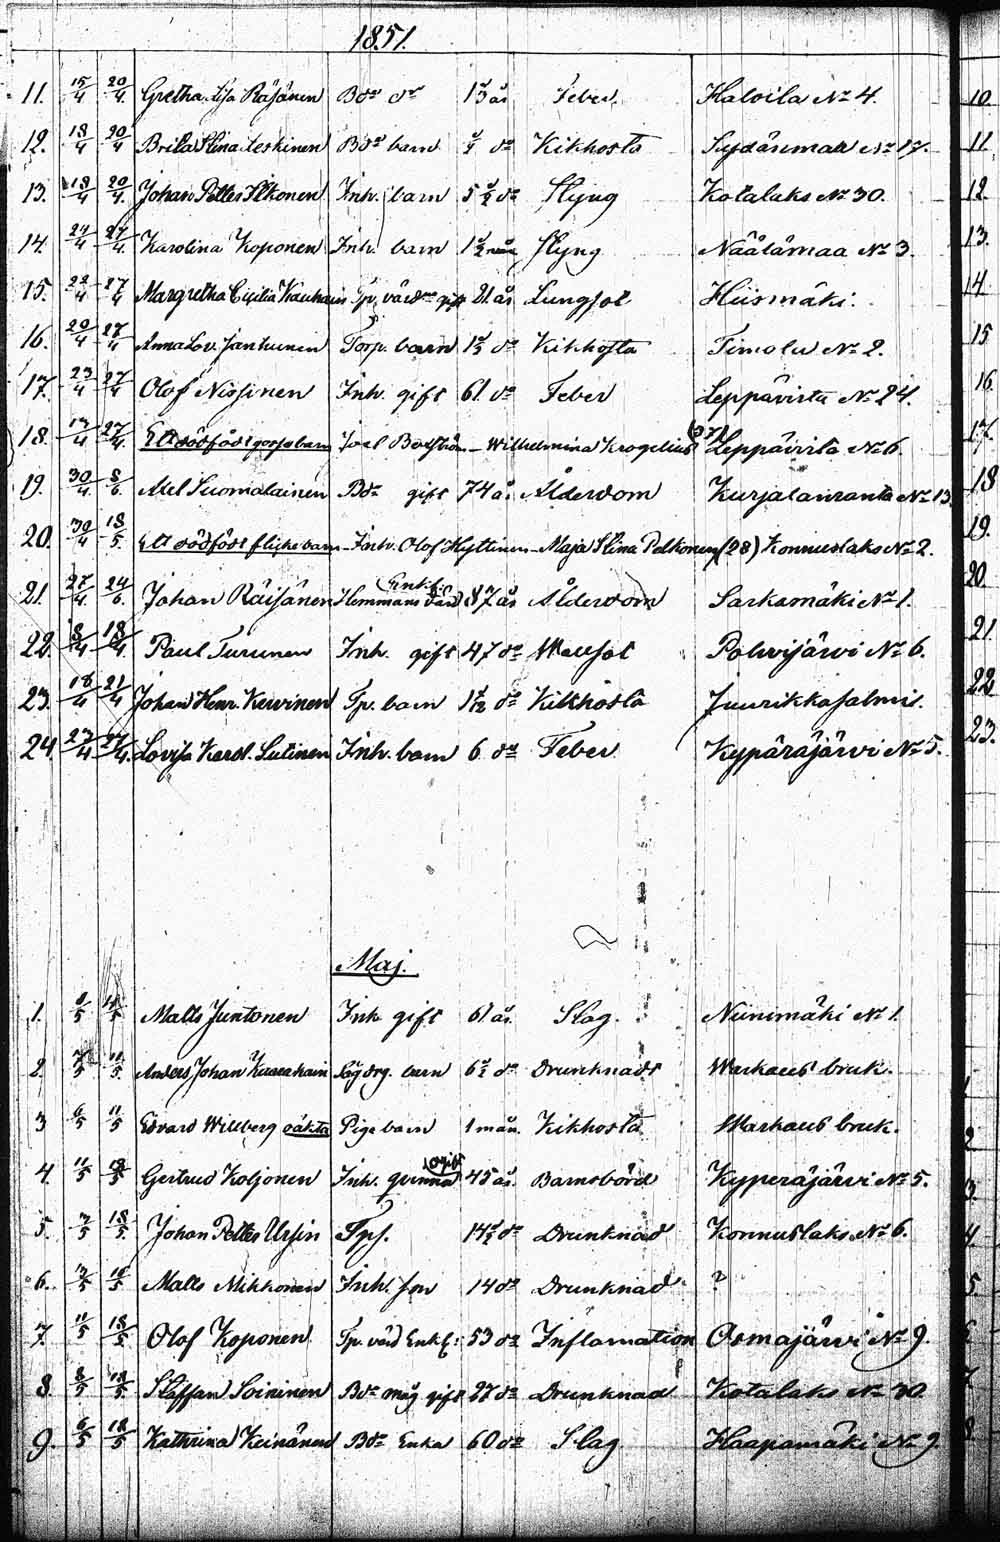 1851.
11. 15/4 20/4. Gretha Lisa Räsänen Bds dr 1 1/3 år Feber Haloila No 4.
12. 18/4 20/4 Brita Stina Leskinen Bds barn do Kikhosta Sydänmaa No 17.
13. 18/4 20/4. Johan Petter Itkonen Inh. barn 5 1/2 do Slyng Kotalaks No 30.
14. 24/4 27/4. Karolina Koponen Inh. barn 1 1/2 mån Slyng Näätämaa No 3.
15. 22/4 27/4 Margretha Cicilia Kauhain Tp. gift 21 år Lungsot Hiismäki.
16. 20/4 27/4 Anna Lov. Janhunen Torp. barn do Kikhosta Timola No 2.
17. 23/4 27/4 Olof Nissinen Inh. gift 61 do Feber Leppävirta No 24.
18. 17/4 27/4. Ett dödfödt gossebarn Joel Bodström - Wilhelmina Krogelius Leppävirta No 6.
19. 30/4 8/6. Abel Suomalainen Bds gift 74 år Ålderdom Kurjalanranta No 13.
20. 30/4 18/5. Ett dödfödt flickebarn - Inh. Olof Hyttinen - Maja Stina Pelkonen (28) Konnuslaks No 2.
21. 27/4. 24/6. Johan Räisänen Hemmans Enkl. 87 år Ålderdom Sarkamäki No 1.
22. 8/4 18/4. Paul Turunen Inh. gift 47 do Wattsot Polvijärvi No 6.
23. 18/4 21/4 Johan Henr. Kervinen Tp. barn do Kikhosta Juurikkasalmis.
24. 23/4 27/4. Lovisa Karol. Sutinen Inh. barn 6 do Feber Kypäräjärvi No 5.
Maj.
1. Matts Juntonen Inh. gift 61 år. Slag. Niinimäki No 1.
2 7/5 11/5. Anders Johan barn 6 1/2 do Drunknadt Warkaus bruk.
3 6/5 11/5 Edvard Willberg oäkta Pige barn 1 mån. Kikhosta Warkaus bruk.
4. 11/5 18/5 Gertrud Koljonen Inh. qvinna ogift 45 år. Barnsbörd Kyperäjärvi No 5.
5. 7/5 18/5. Johan Petter Ursin 14 1/2 do Drunknad Konnuslaks No 6.
6. Matts Mikkonen Inh. son 14 do Drunknad ?
7. 11/5 18/5 Olof Koponen Tp. värd Enkl: 53 do Inflamation Osmajärvi No 9.
8. 8/5 18/5. Staffan Soininen Bds måg gift 27 do Drunknad Kotalaks No 30.
9. 6/5 18/5 Kathrina Keinänen Bds Enka 60 do Slag Haapamäki No 9.
10
11
12.
13.
14
15
16.
17.
18
19.
20.
21.
22
23.
1
2
3.
4.
5
6
7
8